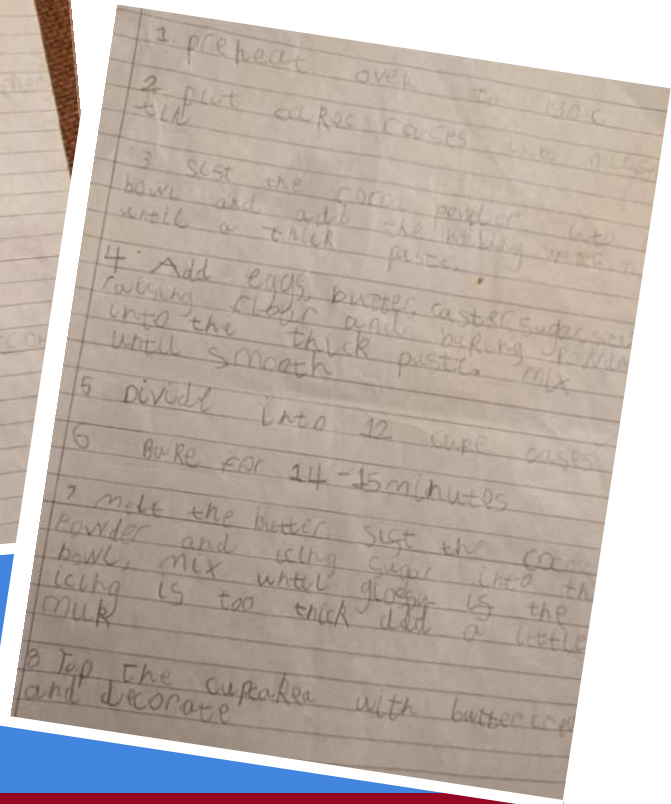 1. preheat oven to 180.C
2 put cakes cases into
tin
3 sist the coco powder into
bowl and add the boiling
until a thick paste.
4. Add eggs, butter, caster sugar,
raising flour and baking
into the thick paste. mix
until smooth
5 Divide into 12 cake cases
6 Bake for 14-15 minutes
7 melt the butter, sist the
powder and icing sugar into th
bowl, mix until glossy is the
icing is too thick add a little
milk
8 Top the cupcakes with buttercr
and decorate